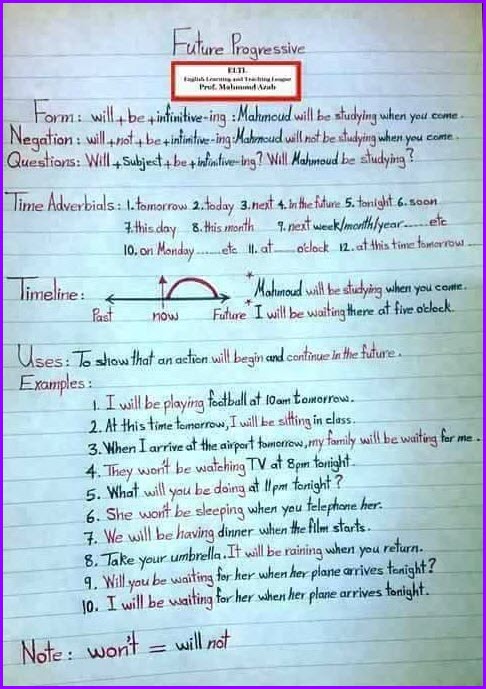 Future Progressive
ELTL
English Learning and Teaching League
Prof. Mahmoud Azab
Form: will + be + infinitive-ing : Mahmoud will be studying when you come.
Negation : will + not + be + infinitive-ing: Mahmoud will not be studying when you come.
Questions: Will + Subject + be + infinitive-ing? Will Mahmoud be studying?
Time Adverbials: 1. tomorrow 2. today 3. next 4. in the future 5. tonight 6. soon
7. this day 8. this month 9. next week/month/year.......etc
10. on Monday.......etc 11. at.......o'clock 12. at this time tomorrow....
Timeline:
Past now Future
* Mahmoud will be studying when you come.
* I will be waiting there at five o'clock.
Uses: To show that an action will begin and continue in the future.
Examples:
1. I will be playing football at 10am tomorrow.
2. At this time tomorrow, I will be sitting in class.
3. When I arrive at the airport tomorrow, my family will be waiting for me.
4. They won't be watching TV at 8pm tonight.
5. What will you be doing at 11pm tonight?
6. She won't be sleeping when you telephone her.
7. We will be having dinner when the film starts.
8. Take your umbrella. It will be raining when you return.
9. Will you be waiting for her when her plane arrives tonight?
10. I will be waiting for her when her plane arrives tonight.
Note: won't = will not